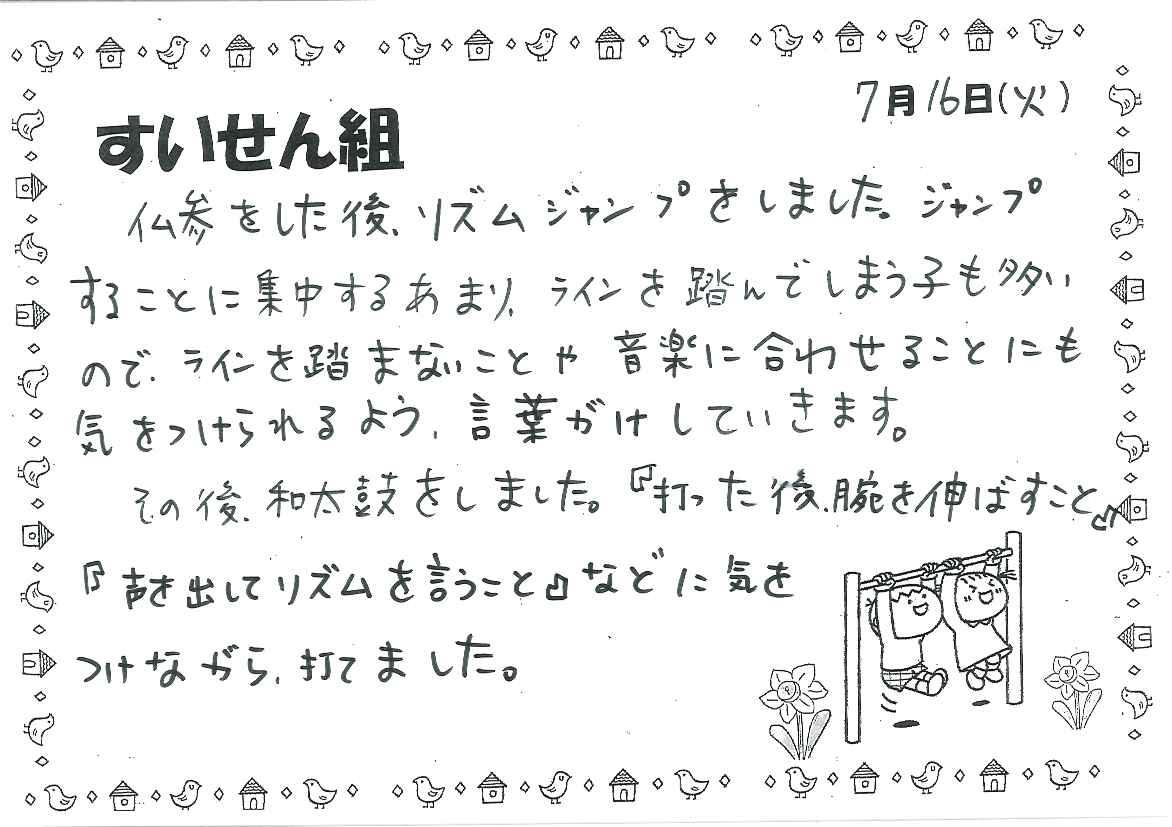 7月16日(火)
すいせん組
仏参をした後、リズムジャンプをしました。ジャンプ
することに集中するあまり、ラインを踏んでしまう子も多い
ので、ラインを踏まないことや音楽に合わせることにも
気をつけられるよう、言葉がけしていきます。
その後、和太鼓をしました。『打った後、腕を伸ばすこと』
『声を出してリズムを言うこと』などに気を
つけながら、打てました。